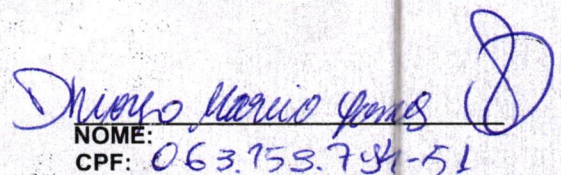 Dhiogo Marcio Gomes
NOME:
CPF: 063.153.794-51